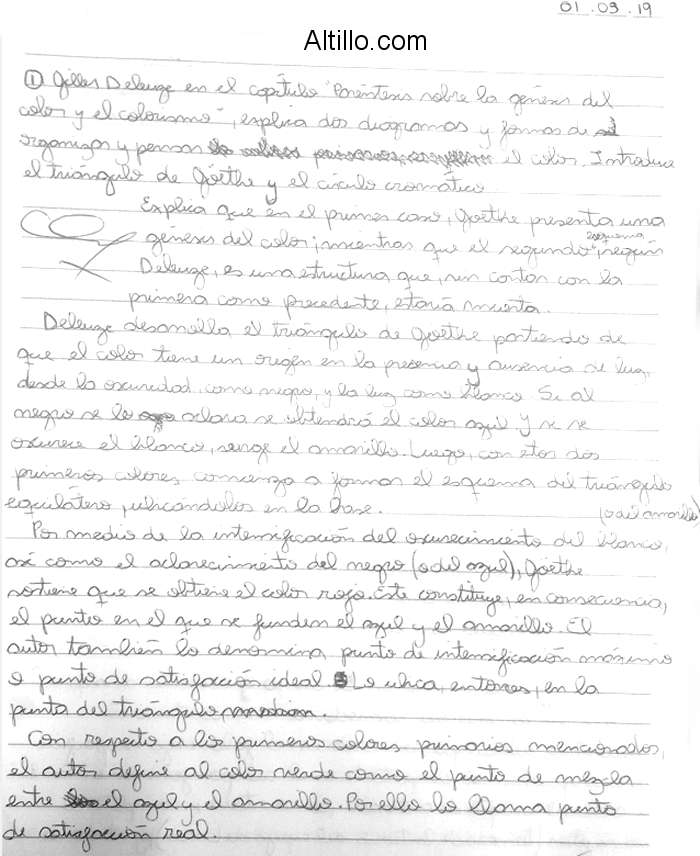 01.03.19
Altillo.com
① Gilles Deleuze en el capítulo "Paréntesis sobre la génesis del
color y el colorismo", explica dos diagramas y formas de
organizar y pensar el color. Introduce
el triángulo de Göethe y el círculo cromático
Explica que en el primer caso, Goethe presenta una
génesis del color; mientras que el segundo esquema, según
Deleuze, es una estructura que, sin contar con la
primera como precedente, estaría muerta.
Deleuze desarrolla el triángulo de Goethe partiendo de
que el color tiene un origen en la presencia y ausencia de luz,
desde la oscuridad como negro, y la luz como blanco. Si al
negro se lo aclara se obtendrá el color azul y si se
oscurece el blanco, surge el amarillo. Luego, con estos dos
primeros colores, comienza a formar el esquema del triángulo
equilátero, ubicándolos en la base.
(o del amarillo)
Por medio de la intensificación del oscurecimiento del blanco,
así como el aclarecimiento del negro (o del azul), Göethe
sostiene que se obtiene el color rojo. Este constituye, en consecuencia,
el punto en el que se funden el azul y el amarillo. El
autor también lo denomina punto de intensificación máximo
o punto de satisfacción ideal. Lo ubica, entonces, en la
punta del triángulo.
Con respecto a los primeros colores primarios mencionados,
el autor define al color verde como el punto de mezcla
entre el azul y el amarillo. Por ello lo llama punto
de satisfacción real.